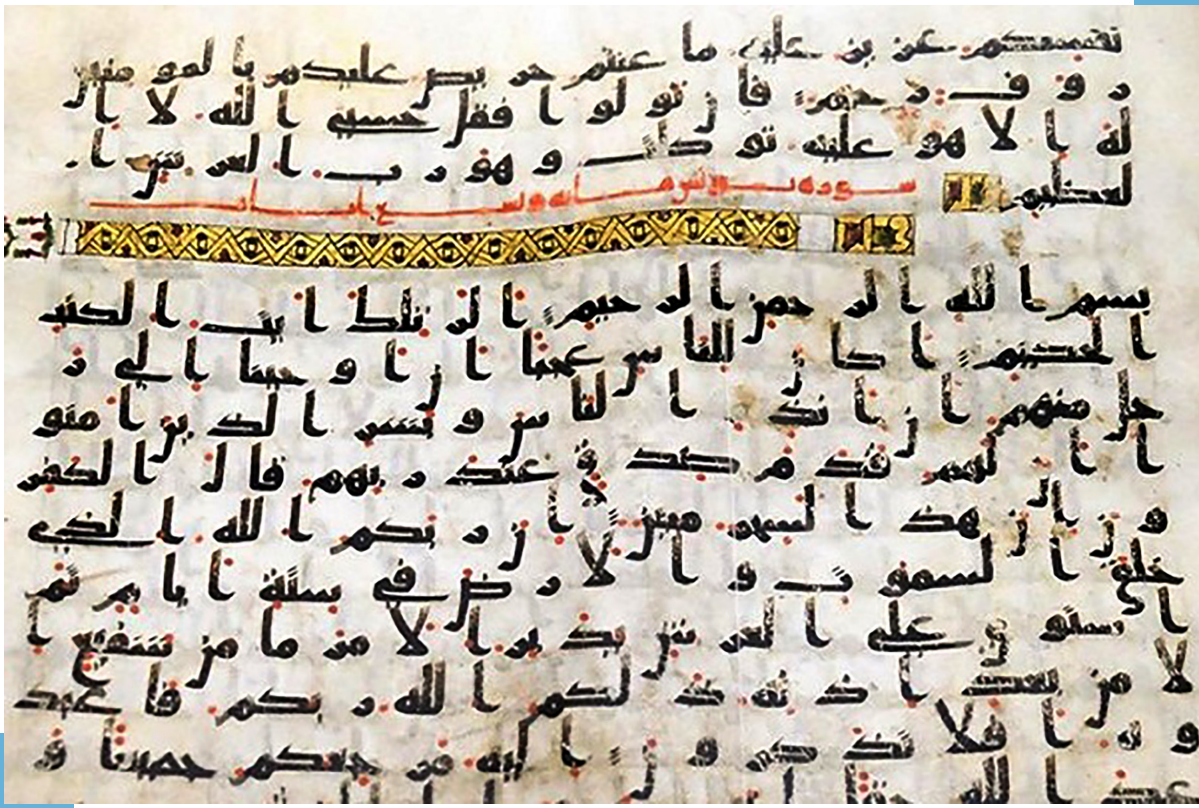 نفسكم عزيز عليه ما عنتم حريص عليكم بالمومنين
روف رحيم فان تولوا فقل حسبي الله لا ا
له الا هو عليه توكلت وهو رب العرش ا
لعظيم
سورة يونس مائة وتسع ايات
بسم الله الرحمن الرحيم الر تلك ايت الكتب
الحكيم اكان للناس عجبا ان اوحينا الى ر
جل منهم ان انذر الناس وبشر الذين امنو
ا ان لهم قدم صدق عند ربهم قال الكفر
ون ان هذا لسحر مبين ان ربكم الله الذي
خلق السموت والارض في ستة ايام ثم
استوى على العرش يدبر الامر ما من شفيع ا
لا من بعد اذنه ذلكم الله ربكم فاعبد
وه افلا تذكرون اليه مرجعكم جميعا و
عد الله حقا